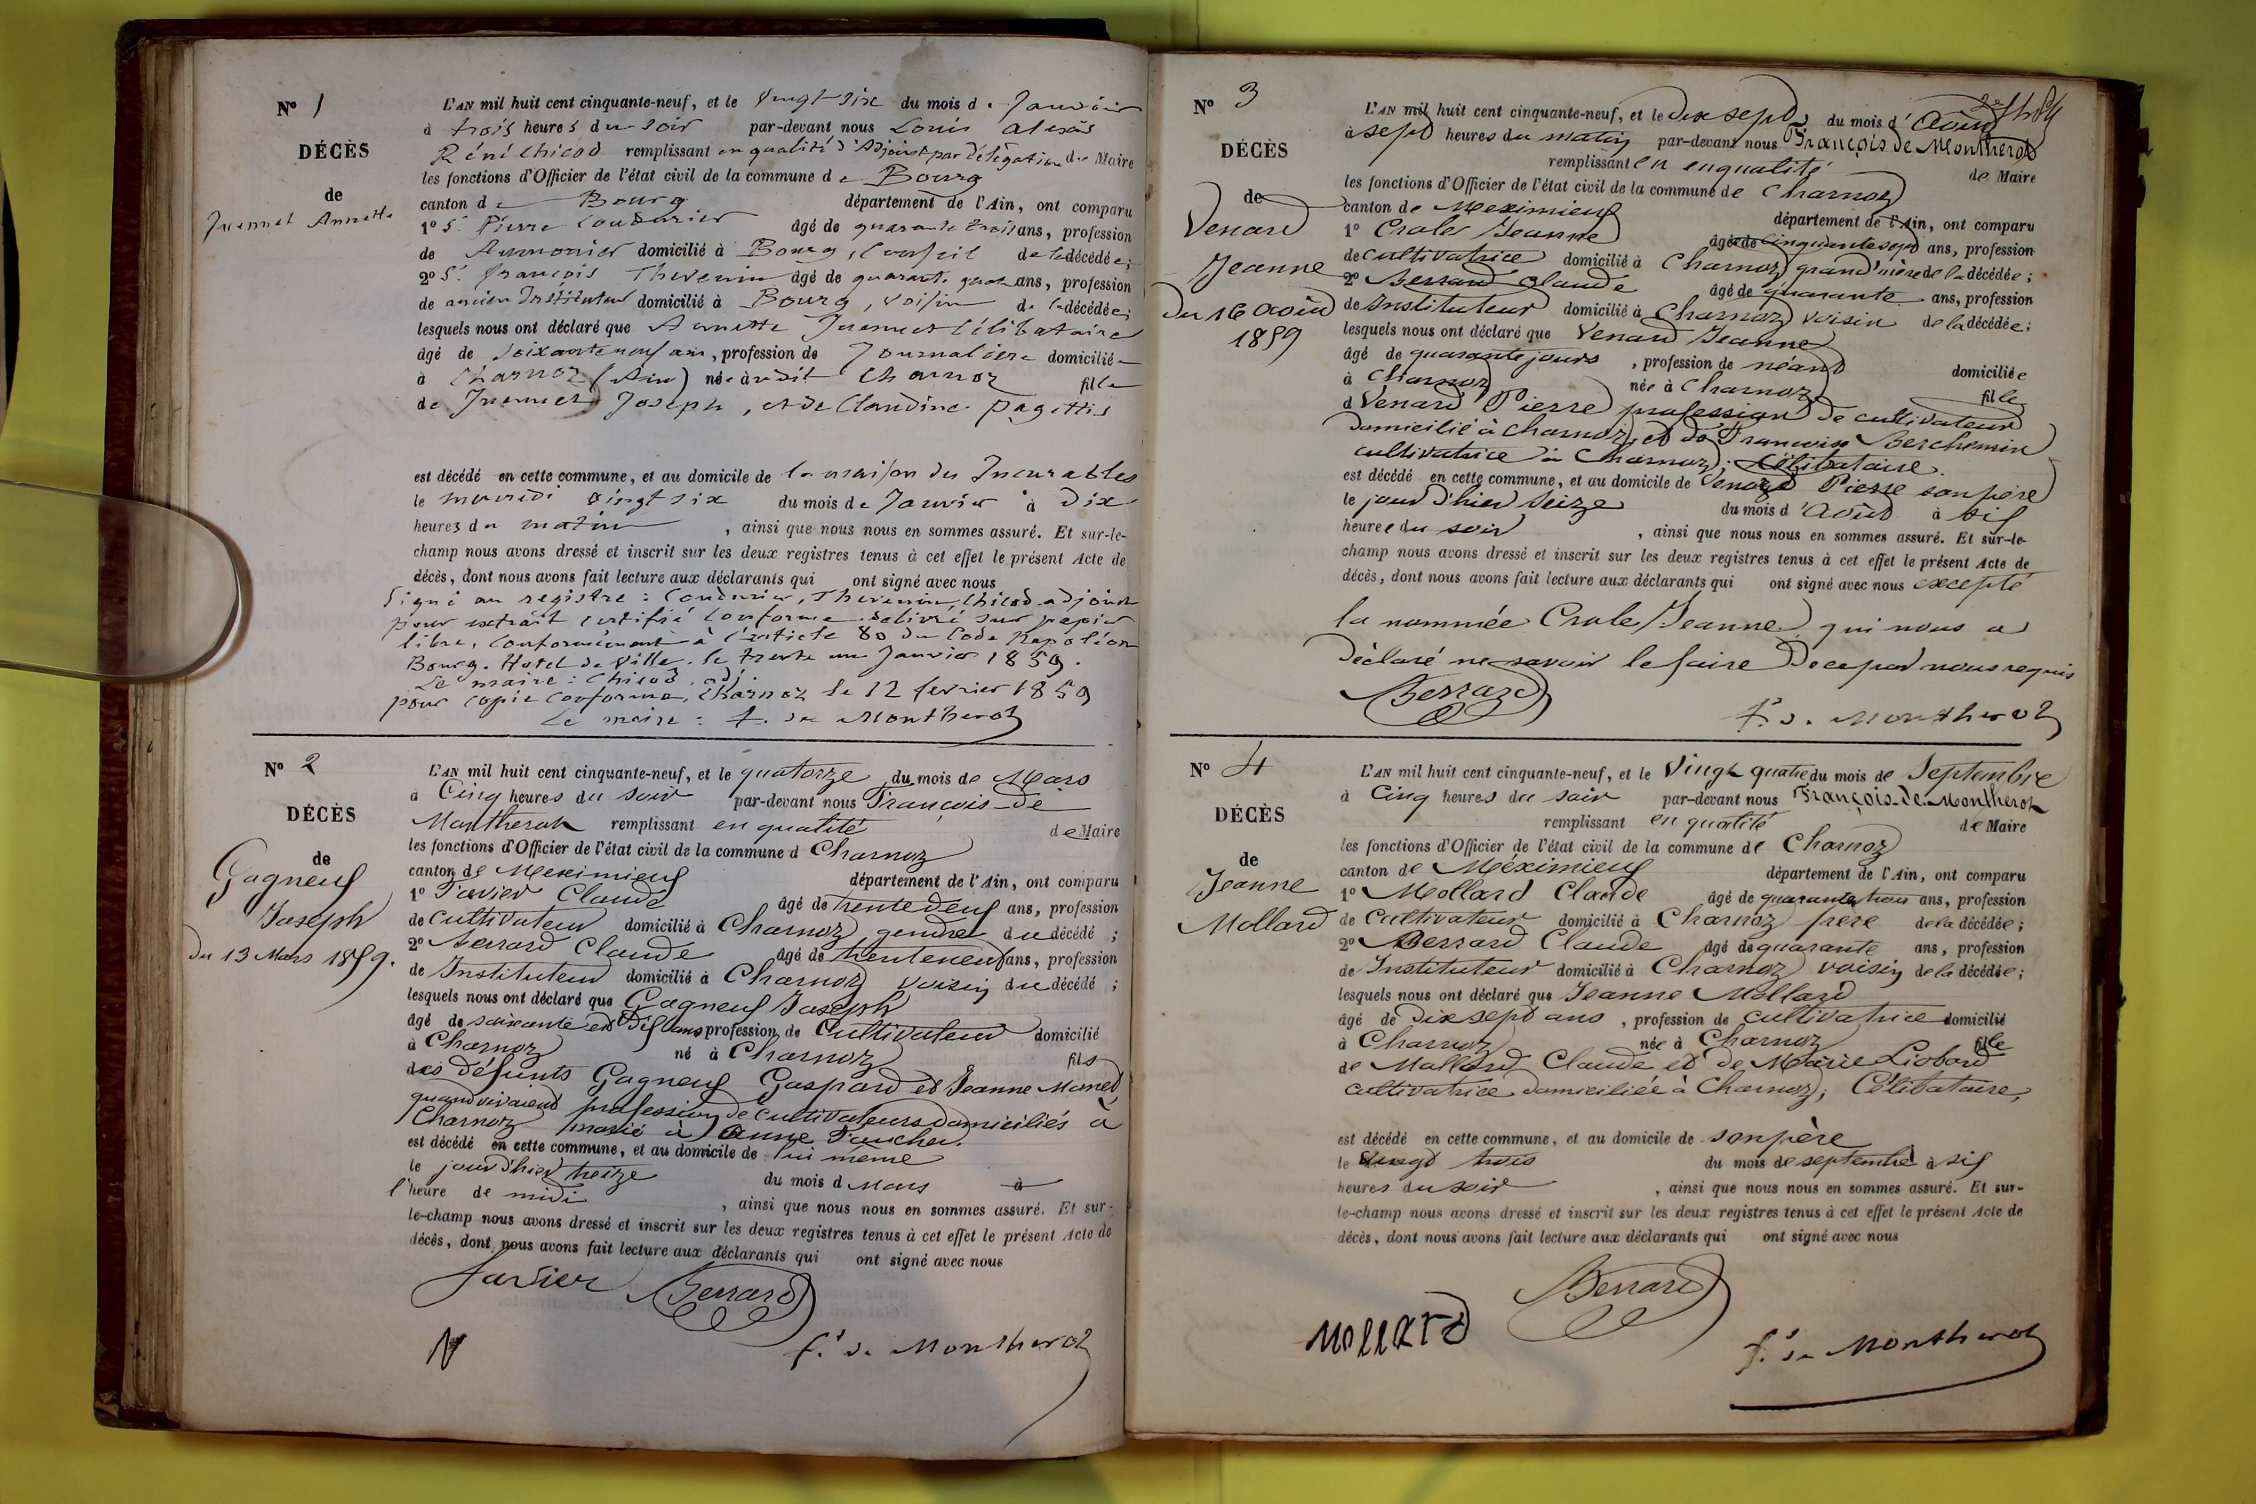 N° 1
DÉCÈS
de
Juennet Annette
L'AN mil huit cent cinquante-neuf, et le Vingt six du mois de Janvier
à trois heures du soir par-devant nous Louis alexis
Réné Chicod remplissant en qualité d'Adjoint par délégation de Maire
les fonctions d'Officier de l'état civil de la commune de Bourg
canton de Bourg département de l'Ain, ont comparu
1° Sr Pierre Coudurier âgé de quarante trois ans, profession
de Aumonier domicilié à Bourg, de la décédée;
2° Sr françois Thevenin âgé de quarante ans, profession
de ancien Instituteur domicilié à Bourg, voisin de la décédée;
lesquels nous ont déclaré que Annette Juennet Célibataire
âgé de soixante neuf ans, profession de Journalière domiciliée
à Charnoz (Ain) née à u dit Charnoz fille
de Juennet Joseph, et de Claudine pagettis
est décédé en cette commune, et au domicile de la maison des Incurables
le mercredi vingt six du mois de Janvier à Dix
heures du matin, ainsi que nous nous en sommes assuré. Et sur-le-
champ nous avons dressé et inscrit sur les deux registres tenus à cet effet le présent Acte de
décès, dont nous avons fait lecture aux déclarants qui ont signé avec nous
Signé au registre : Coudurier, Thevenin, Chicod adjoint
pour extrait certifié conforme delivré sur papier
libre, conformément à l'article 80 du Code Napoléon
Bourg. Hotel de Ville, le trente un Janvier 1859.
Le maire : Chicod adj.
pour copie conforme, Charnoz le 12 fevrier 1859
Le maire : f. de Montherot
N° 2
DÉCÈS
de
Gagneux
Joseph
Du 13 Mars 1859.
L'AN mil huit cent cinquante-neuf, et le quatorze du mois de Mars
à Cinq heures du soir par-devant nous François-De
Montherot remplissant en qualité de Maire
les fonctions d'Officier de l'état civil de la commune d Charnoz
canton de Meximieux département de l'Ain, ont comparu
1° Tavier Claude âgé de trente deux ans, profession
de cultivateur domicilié à Charnoz gendre du décédé ;
2° Berrard Claude âgé de trente neuf ans, profession
de Instituteur domicilié à Charnoz voisin du décédé ;
lesquels nous ont déclaré que Gagneux Joseph
âgé de soixante et dix ans profession de Cultivateur domicilié
à Charnoz né à Charnoz fils
des défunts Gagneux Gaspard et Jeanne Monet
quand vivaient profession de cultivateurs domiciliés à
Charnoz marié à Anne Faucher.
est décédé en cette commune, et au domicile de lui même
le jour d'hier treize du mois d Mars à
l'heure de midi, ainsi que nous nous en sommes assuré. Et sur-
le-champ nous avons dressé et inscrit sur les deux registres tenus à cet effet le présent Acte de
décès, dont nous avons fait lecture aux déclarants qui ont signé avec nous
Berrard
f. de Montherot
N° 3
DÉCÈS
de
Venard
Jeanne
Du 16 Août
1859
L'AN mil huit cent cinquante-neuf, et le Dix sept du mois d' Août
à sept heures du matin par-devant nous François de Montherot
remplissant en en qualité de Maire
les fonctions d'Officier de l'état civil de la commune de Charnoz
canton de Meximieux département de l'Ain, ont comparu
1° Crole Jeanne âgée de cinquante sept ans, profession
de cultivatrice domicilié à Charnoz grand'mère de la décédée ;
2° Berrard Claude âgé de quarante ans, profession
de Instituteur domicilié à Charnoz voisin de la décédée ;
lesquels nous ont déclaré que Venard Jeanne
âgé de quarante jours, profession de néant domiciliée
à Charnoz née à Charnoz fille
d Venard Pierre profession de cultivateur
domicilié à Charnoz, et de Francoise Berchemin
cultivatrice à Charnoz ; Célibataire.
est décédé en cette commune, et au domicile de Venard Pierre son père
le jour d'hier seize du mois d' Août à six
heures du soir, ainsi que nous nous en sommes assuré. Et sur-le-
champ nous avons dressé et inscrit sur les deux registres tenus à cet effet le présent Acte de
décès, dont nous avons fait lecture aux déclarants qui ont signé avec nous excepté
la nommée Crole Jeanne qui nous a
déclaré ne savoir le faire De ce par nous requis
Berrard
f. de Montherot
N° 4
DÉCÈS
de
Jeanne
Mollard
L'AN mil huit cent cinquante-neuf, et le Vingt quatre du mois de Septembre
à Cinq heures du soir par-devant nous François-De-Montherot
remplissant en qualité de Maire
les fonctions d'Officier de l'état civil de la commune de Charnoz
canton de Méximieux département de l'Ain, ont comparu
1° Mollard Claude âgé de quarante trois ans, profession
de Cultivateur domicilié à Charnoz père de la décédée ;
2° Berrard Claude âgé de quarante ans, profession
de Instituteur domicilié à Charnoz voisin de la décédée ;
lesquels nous ont déclaré que Jeanne Mollard
âgé de Dix sept ans, profession de cultivatrice domicilié
à Charnoz née à Charnoz fille
de Mollard Claude et de Marie Liobard
cultivatrice domiciliée à Charnoz ; Célibataire,
est décédé en cette commune, et au domicile de son père
le vingt trois du mois de septembre à six
heures du soir, ainsi que nous nous en sommes assuré. Et sur-
le-champ nous avons dressé et inscrit sur les deux registres tenus à cet effet le présent Acte de
décès, dont nous avons fait lecture aux déclarants qui ont signé avec nous
Berrard
Mollard
f. de Montherot